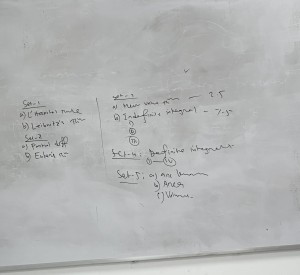 Set-1
a) L'Hospital's rule
b) Leibnitz's Th
Set-2
a) Partial diff
b) Euler's Th
Set-3
a) Mean value thm — 2.5
b) Indefinite integral — 7.5
Set-4: Definite integral
Set-5: a) Arc
b) Area
c) Volume